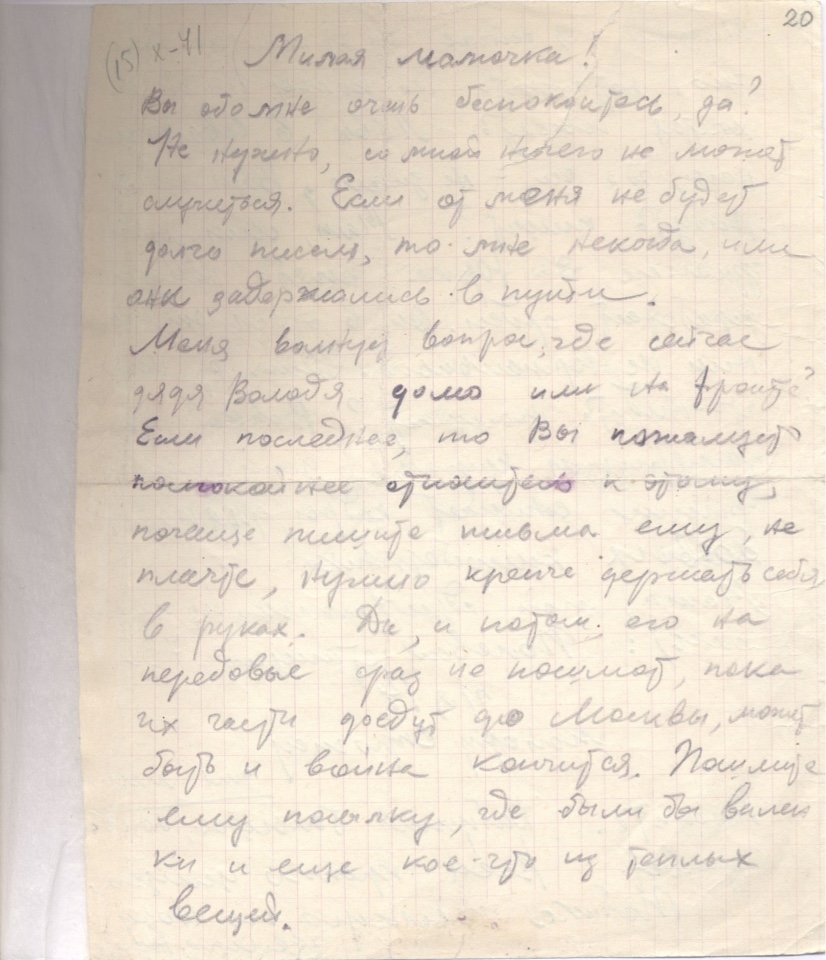 20
(15) X-41
Милая мамочка!
Вы обо мне очень беспокоитесь, да?
Не нужно, со мной ничего не может
случиться. Если от меня не будет
долго писем, то мне некогда, или
они задержались в пути.
Меня волнует вопрос, где сейчас
дядя Володя дома или на фронте?
Если последнее, то Вы пожалуйста
поспокойнее отнеситесь к этому,
почаще пишите письма ему, не
плачте, нужно крепче держать себя
в руках. Да, и потом, его на
передовые сраз не пошлют, пока
их части доедут до Москвы, может
быть и война кончится. Пошлите
ему посылку, где были бы вален
ки и еще кое-что из теплых
вещей.